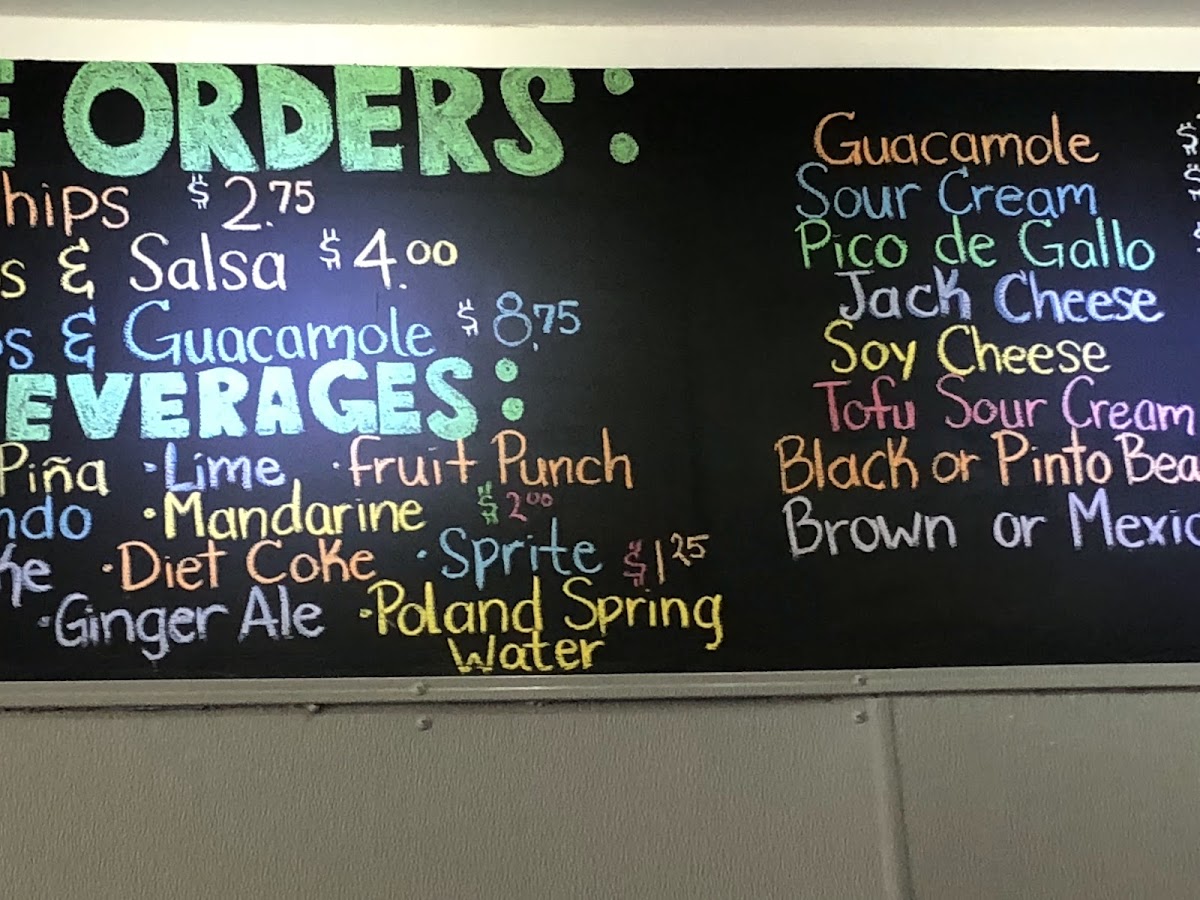 E ORDERS:
hips $2.75
s & Salsa $4.00
s & Guacamole $8.75
EVERAGES:
Piña ·Lime ·Fruit Punch
ndo ·Mandarine $2.00
ke ·Diet Coke ·Sprite $1.25
·Ginger Ale ·Poland Spring
Water
Guacamole $
Sour Cream
Pico de Gallo $
Jack Cheese
Soy Cheese
Tofu Sour Cream
Black or Pinto Bea
Brown or Mexic